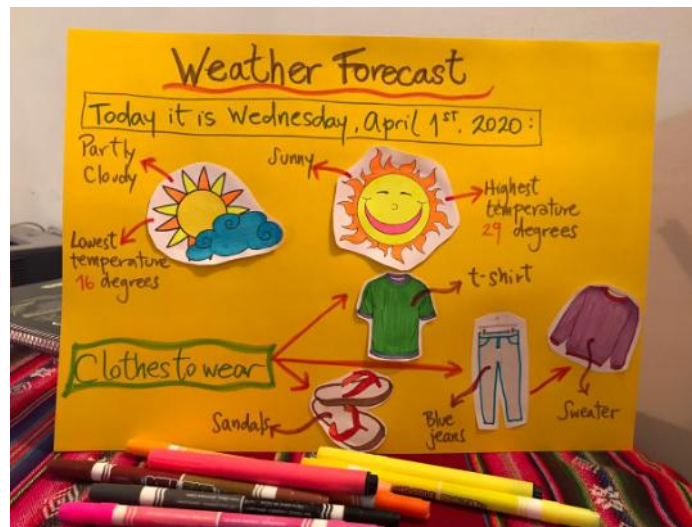 Weather Forecast
Today it is Wednesday, April 1ST. 2020:
Partly
Cloudy
Sunny
Highest
temperature
29 degrees
Lowest
temperature
16 degrees
t-shirt
Clothes to wear
Sandals
Blue
jeans
Sweater